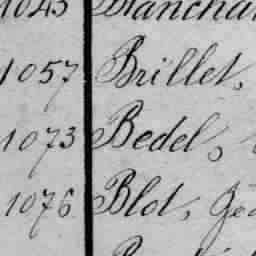 1043 Blancha
1057 Brillet,
1073 Bedel,
1076 Blot,